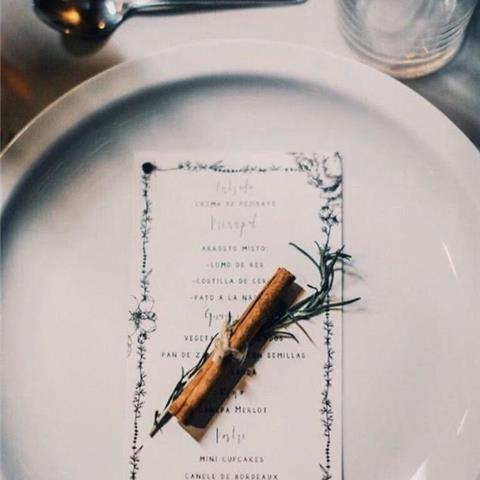 Entrada
CREMA DE PEJIBAYE
Principal
ARROSTO MISTO:
-LOMO DE RES
-COSTILLA DE
-PATO A LA
PAN DE CON SEMILLAS
MERLOT
Postre
MINI CUPCAKES
CANELE DE BORDEAUX